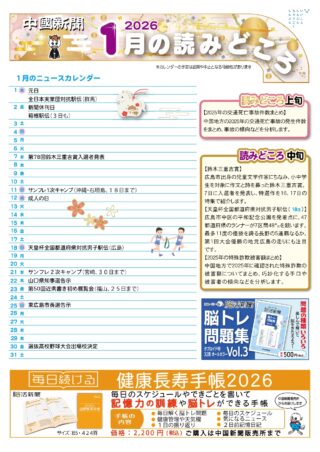 中國新聞
2026
1月の読みどころ
1月のニュースカレンダー
1 木 元日
全日本実業団対抗駅伝(群馬)
2 金 新聞休刊日
箱根駅伝(3日も)
3 土
4 日
5 月
6 火
7 水 第78回鈴木三重吉賞入選者発表
8 木
9 金
10 土
11 日 サンプレ1次キャンプ(沖縄・石垣島、18日まで)
12 月 成人の日
13 火
14 水
15 木
16 金
17 土
18 日 天皇杯全国都道府県対抗男子駅伝(広島)
19 月
20 火
21 水 サンフレ2次キャンプ(宮崎、30日まで)
22 木 山口県知事選告示
23 金 第50回近衆書き初め展覧会(福山、25日まで)
24 土
25 日 東広島市長選告示
26 月
27 火
28 水
29 木
30 金 選抜高校野球大会出場校決定
31 土
読みどころ 上旬
【2025年の交通死亡事故件数まとめ】
中国地方の2025年の交通死亡事故の発生件数
をまとめ、事故の傾向などを分析します。
読みどころ 中旬
【鈴木三重吉賞】
広島市出身の児童文学作家にちなみ、小中学
生を対象に作文と詩を募った鈴木三重吉賞。
7日に入選者を発表し、特選作を16、17日の
特集で紹介します。
【天皇杯全国都道府県対抗男子駅伝(18日)】
広島市中区の平和記念公園を発着点に、47
都道府県のランナーが7区間48㌔を競います。
【2025年の特殊詐欺被害額まとめ】
中国地方で2025年に確認された特殊詐欺の
被害額についてまとめ、巧妙化する手口や
被害者の傾向などを分析します。
脳活新聞
脳トレ
問題集
Vol.3
問題の種類いろいろ
500円
毎日続ける
健康長寿手帳2026
脳活新聞
毎日のスケジュールやできごとを書いて
記憶力の訓練や脳トレができる手帳
手帳の
内容
●毎日解く脳トレ問題
●健康管理や天気欄
●1日の振り返り
●毎日のスケジュール
●気になるニュース
●2日前の日記
サイズ:B5・424頁
価格:2,200円(税込) ご購入は中国新聞販売所まで